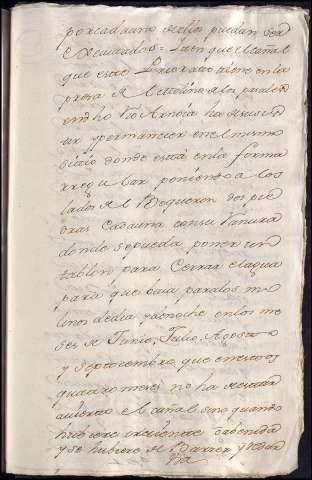 por cada uno de ellos puedan ser
executados = Y en que el cañal
que este Priorato tiene en la
presa de el molino de los
en dho Rio Arnoia ha de
y permanecer en el mismo
sitio donde está en la forma
regular poniendo a los
lados de el Boqueron dos pie
dras Cada una con su ranura
donde se pueda poner un
tablon para Cerrar el agua
para que baia para los mo
linos de dia y de noche en los me
ses de Junio, Julio, Agosto
y Septiembre, que en estos
quatro meses no ha de estar
auierto el cañal sino quando
hubiere creciente crecida
y se hubiere de Barrer y